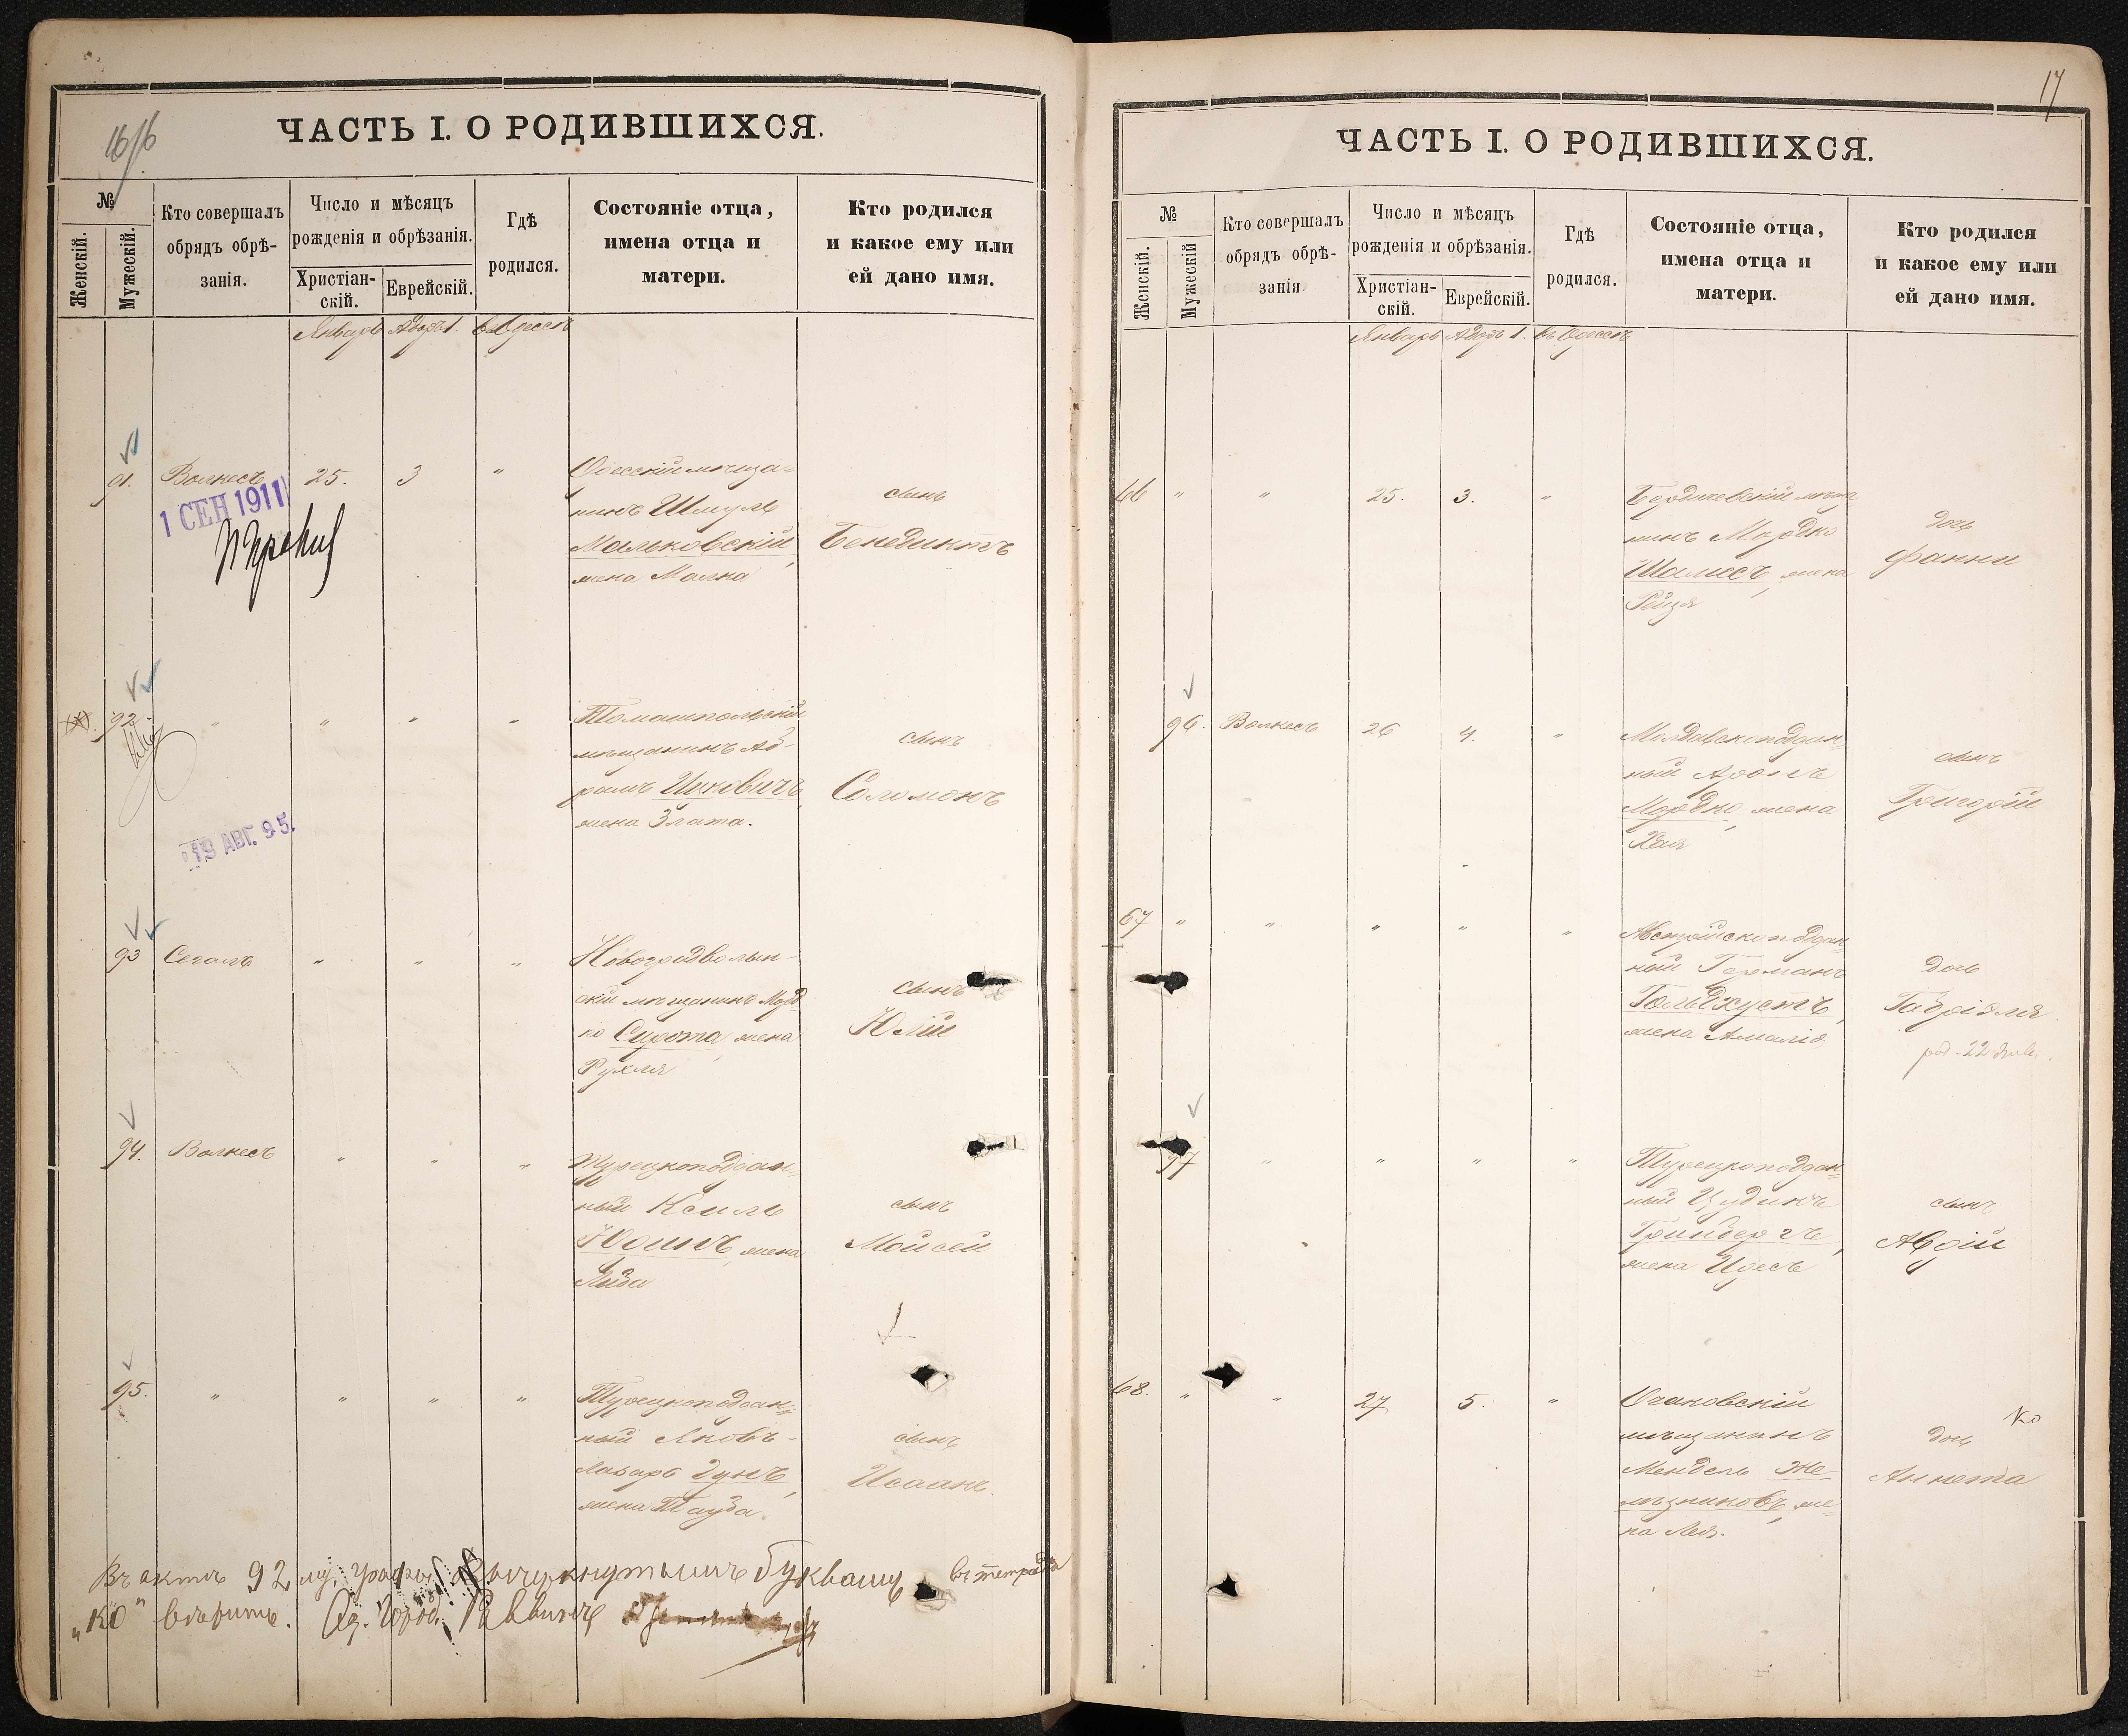 16/16
ЧАСТЬ I. О РОДИВШИХСЯ.
№
Женскій.
Мужескій.
Кто совершалъ
обрядъ обрѣ-
занія.
Число и мѣсяцъ
рожденія и обрѣзанія.
Христіан-
скій.
Еврейскій.
Гдѣ
родился.
Состояніе отца,
имена отца и
матери.
Кто родился
и какое ему или
ей дано имя.
Январь Адаръ 1. въ Одессѣ
91. Волкесъ 25. 3 "
1 СЕН 1911
Одесскій мѣща-
нинъ Шмуль
Мальковскій,
жена Малка
сынъ
Бенедиктъ
92. " " " "
19 АВГ. 95.
Томашпольскій
мѣщанинъ Аб-
рамъ Ицковичъ
жена Злата.
сынъ
Соломонъ
93 Сегалъ " " "
Новоградволын-
скій мѣщанинъ Морд
ко Сирота, жена
Рухля
сынъ
Юлій
94. Волкесъ " " "
Турецкоподдан-
ный Ксиль
жена
сынъ
Мойсей
95. " " " "
Турецкоподдан-
ный Яковъ-
Лазарь Гунъ,
жена Тауба.
сынъ
Исаакъ.
Въ актѣ 92 муж. графы зачеркнутымъ буквамъ
„КО" вѣрить. Од. Город. Раввинъ
въ тетрадѣ
17
ЧАСТЬ I. О РОДИВШИХСЯ.
№
Женскій.
Мужескій
Кто совершалъ
обрядъ обрѣ-
занія.
Число и мѣсяцъ
рожденія и обрѣзанія.
Христіан-
скій.
Еврейскій.
Гдѣ
родился.
Состояніе отца,
имена отца и
матери.
Кто родился
и какое ему или
ей дано имя.
Январь Адаръ 1. въ Одессѣ
66 " " 25. 3. "
Бердичевскій мѣща
нинъ Мордко
Шамесъ, жена
Рейзя
дочь
Фанни
96. Волкесъ 26 4. "
Молдавскоподдан-
ный Аронъ
Мордко, жена
Хая
сынъ
Григорій
67 " " " " "
Австрійскоподдан
ный Германъ
Гольдхустъ,
жена Амалія
дочь
Габріэля
97 " " " "
Турецкоподдан
ный Цудикъ
Гринбергъ,
жена Идесъ
сынъ
Авдій
68. " " 27 5. "
Очаковскій
мѣщанинъ
Мендель Же-
лѣзниковъ, же-
на Лея.
Ко
дочь
Аннета